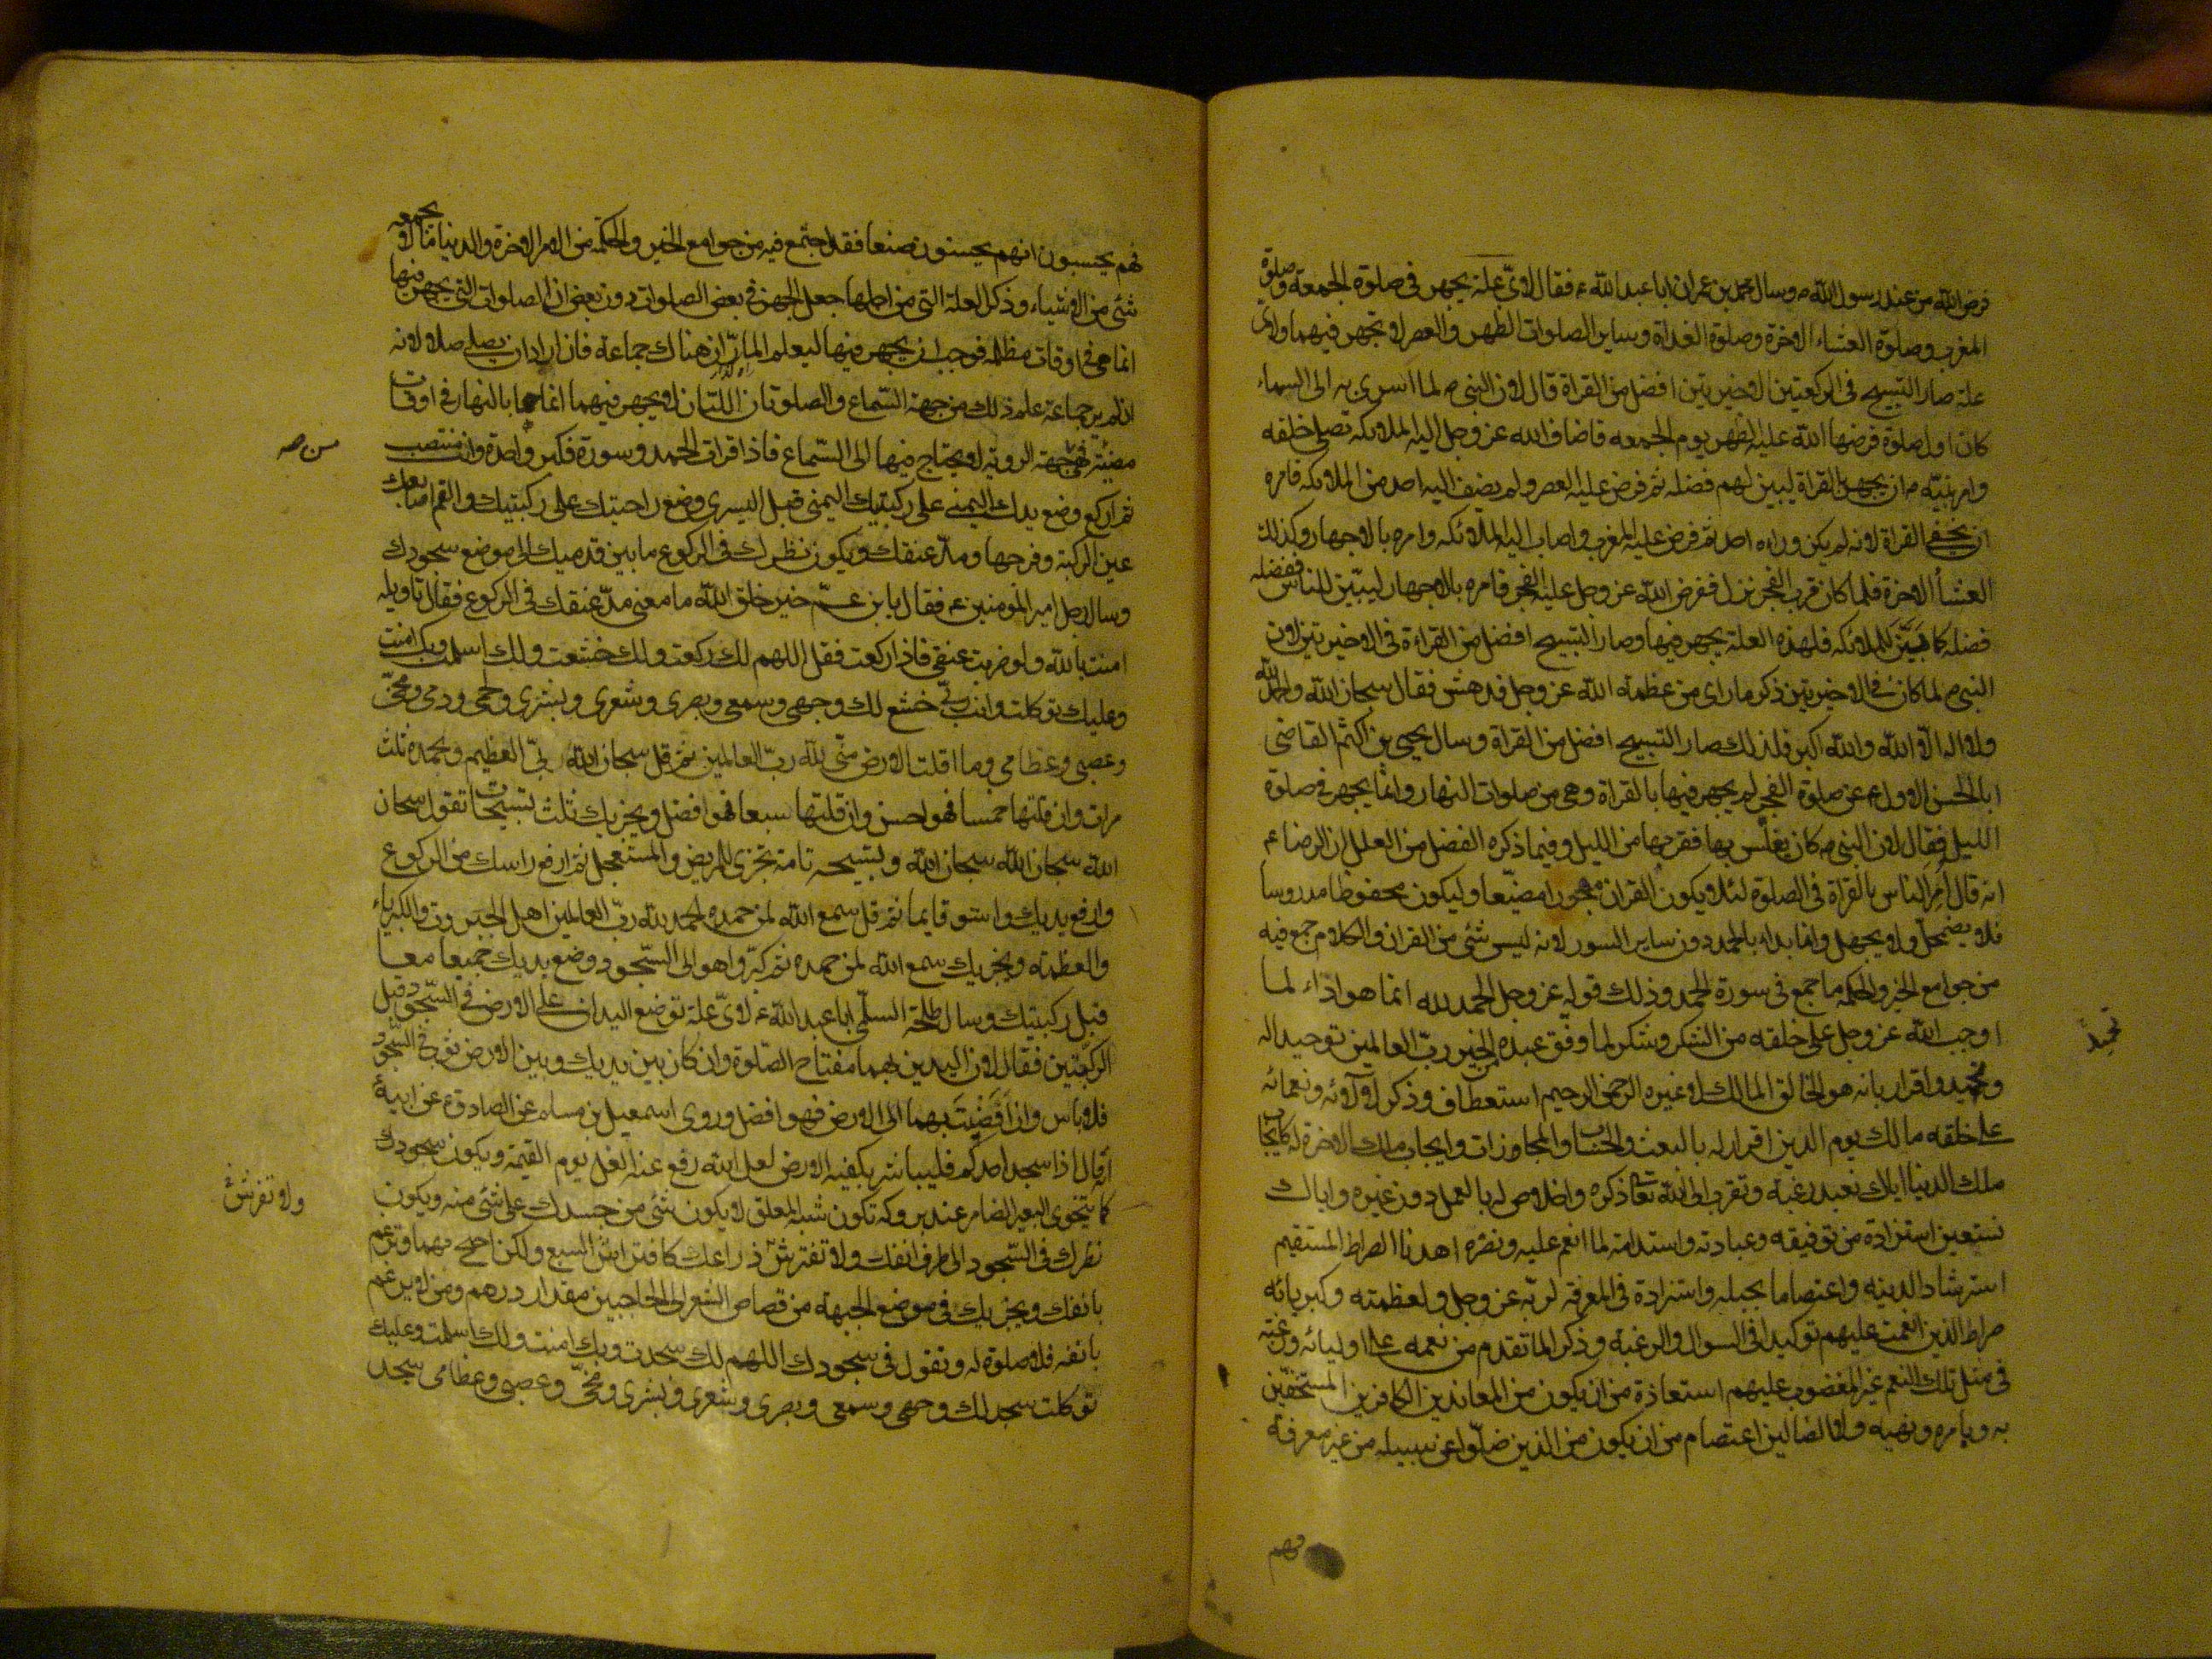 فرض الله من عند رسول الله ص وسال محمد بن عمران ابا عبد الله ع فقال لاىّ علة يجهر فى صلوة الجمعة وصلوة
المغرب وصلوة العشاء الاخرة وصلوة الغداة وساير الصلوات الظهر والعصر لا تجهر فيهما ولاى
علة صار التسبيح فى الركعتين الاخيرتين افضل من القراة قال لان النبى ص لما اسرى به الى السماء
كان اول صلوة فرضها الله عليه الظهر يوم الجمعه فاضاف الله عز وجل اليه الملائكه تصلى خلفه
وامر نبيّه ص ان يجهر بالقراة ليبين لهم فضله ثم فرض عليه العصر ولم يضف اليه احد من الملائكه فامره
ان يخفى القراة لانه لم يكن وراه احد ثم فرض عليه المغرب واضاف اليه الملائكه وامره بالاجهار وكذلك
العشأ الاخرة فلما كان قرب الفجر نزل ففرض الله عز وجل عليه الفجر فامره بالاجهار ليبيّن للناس فضله
فضله كما بيّن للملائكه فلهذه العلة يجهر فيها وصار التسبيح افضل من القراءة فى الاخيرتين لان
النبى ص لما كان فى الاخيرتين ذكر ما راى من عظمة الله عز وجل فدهش فقال سبحان الله والحمد لله
ولا اله الا الله والله اكبر فلذلك صار التسبيح افضل من القراة وسال يحيى بن اكثم القاضى
ابا الحسن الاول ع عن صلوة الفجر لم يجهر فيها بالقراة وهى من صلوات النهار وانما يجهر فى صلوة
الليل فقال لان النبى ص كان يغلّس بها فقربها من الليل وفيما ذكره الفضل من العلل ان الرضا ع
انه قال أمر الناس بالقراة فى الصلوة لئلا يكون القران مهجورا مضيّعا وليكون محفوظا مدروسا
فلا يضمحلّ ولا يجهل وانما بدا بالحمد دون ساير السور لانه ليس شئ من القران والكلام جمع فيه
من جوامع الخير والحكمة ما جمع فى سورة الحمد وذلك قوله عز وجل الحمد لله انما هو اداء لما
اوجب الله عز وجل على خلقه من الشكر وشكر لما وفق عبده للخير رب العالمين توحيد له
وتحميد واقرار بانه هو الخالق المالك لا غيره الرحمن الرحيم استعطاف وذكر لالائه ونعمائه
على خلقه مالك يوم الدين اقرار له بالبعث والحساب والمجازات وايجاب ملك الاخرة له كايجاب
ملك الدنيا اياك نعبد رغبة وتقرب الى الله تعالى ذكره واخلاص له بالعمل دون غيره واياك
نستعين استزادة من توفيقه وعبادته واستدامة لما انعم عليه ونصره اهدنا الصراط المستقيم
استرشاد لدينه واعتصاما بحبله واستزادة فى المعرفه لربّه عز وجل ولعظمته وكبريائه
صراط الذين انعمت عليهم توكيدا فى السوال والرغبة وذكر لما تقدم من نعمه على اوليائه ورغبته
فى مثل تلك النعم غير المغضوب عليهم استعاذة من ان يكون من المعاندين الكافرين المستخفين
به وبامره ونهيه ولا الضالين اعتصام من ان يكون من الذين ضلّوا عن سبيله من غير معرفة
فهم
فهم يحسبون انهم يحسنون صنعا فقد اجتمع فيه من جوامع الخير والحكمة من امر الاخرة والدنيا ما لا يجمعه
شئ من الاشياء وذكر العلة التى من اجلها جعل الجهر فى بعض الصلوات دون بعض ان الصلوات التى يجهر فيها
انما هى فى اوقات مظلمه فوجب ان يجهر فيها ليعلم المارّ ان هناك جماعة فان اراد ان يصلى صلا لانه
ان لم ير جماعة علم ذلك من جهة السّماع والصلوتان اللتان لا يجهر فيهما انما هما بالنهار فى اوقات
مضيئة فهى من جهة الروية لا يحتاج فيها الى السّماع فاذا قرات الحمد وسورة فكبر واحدة وانت منتصب
ثم اركع وضع يدك اليمنى على ركبتيك اليمنى قبل اليسرى وضع راحتيك على ركبتيك والقم اصابعك
عين الركبة وفرجها ومدّ عنقك ويكون نظرك فى الركوع ما بين قدميك الى موضع سجودك
وسال رجل امير المومنين ع فقال يا بن عمّ خير خلق الله ما معنى مدّ عنقك فى الركوع فقال تاويله
امنت بالله ولو ضربت عنقى فاذا ركعت فقل اللهم لك ركعت ولك خشعت ولك اسلمت وبك امنت
وعليك توكلت وانت ربّى خشع لك وجهى وسمعى وبصرى وشعرى وبشرى ولحمى ودمى ومخّى
وعصبى وعظامى وما اقلت الارض منّى لله ربّ العالمين ثم قل سبحان الله ربّى العظيم وبحمده ثلث
مرات وان قلتها خمسا فهو احسن وان قلتها سبعا فهو افضل ويجزيك ثلث تسبيحات تقول سبحان
الله سبحان الله سبحان الله وتسبيحه تامة تجزى للمريض والمستعجل ثم ارفع راسك من الركوع
وارفع يديك واستو قايما ثم قل سمع الله لمن حمده الحمد لله ربّ العالمين اهل الجبروت والكبرياء
والعظمة ويجزيك سمع الله لمن حمده ثم كبّر واهو الى السّجود وضع يديك جميعا معا
قبل ركبتيك وسال طلحة السلّمى ابا عبد الله ع لاىّ علة توضع اليدان على الارض فى السّجود قبل
الركبتين فقال لان اليدين بهما مفتاح الصّلوة وان كان بين يديك وبين الارض ثوب فى السّجود
فلا باس وان افضيت بهما الى الارض فهو افضل وروى اسمعيل بن مسلم عن الصادق ع عن ابيه
انه قال اذا سجد احدكم فليباشر بكفيه الارض لعل الله يدفع عنه الغل يوم القيمة ويكون سجودك
كما يتخوى البعير الضامر عند بروكه تكون شبه المعلق لا يكون شئ من جسدك على شئ منه ويكون
نظرك فى السّجود الى طرف انفك ولا تفترش ذراعك كافتراش السبع ولكن اجنح بهما وترغم
بانفك ويجزيك فى موضع الجبهة من قصاص الشعر الى الحاجبين مقدار درهم ومن لا يرغم
بانفه فلا صلوة له وتقول فى سجودك اللهم لك سجدت وبك امنت ولك اسلمت وعليك
توكلت سجد لك وجهى وسمعى وبصرى وشعرى وبشرى ومخّى وعصبى وعظامى سجد
ولا تفرش